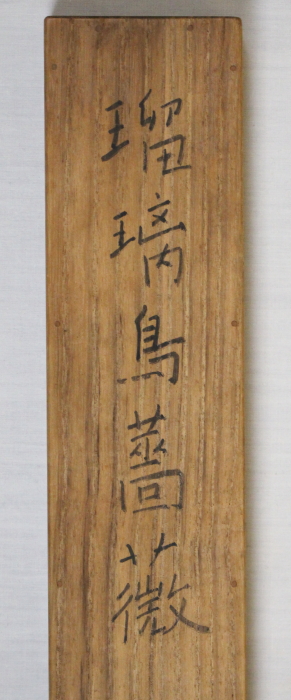 瑠璃鳥薔薇